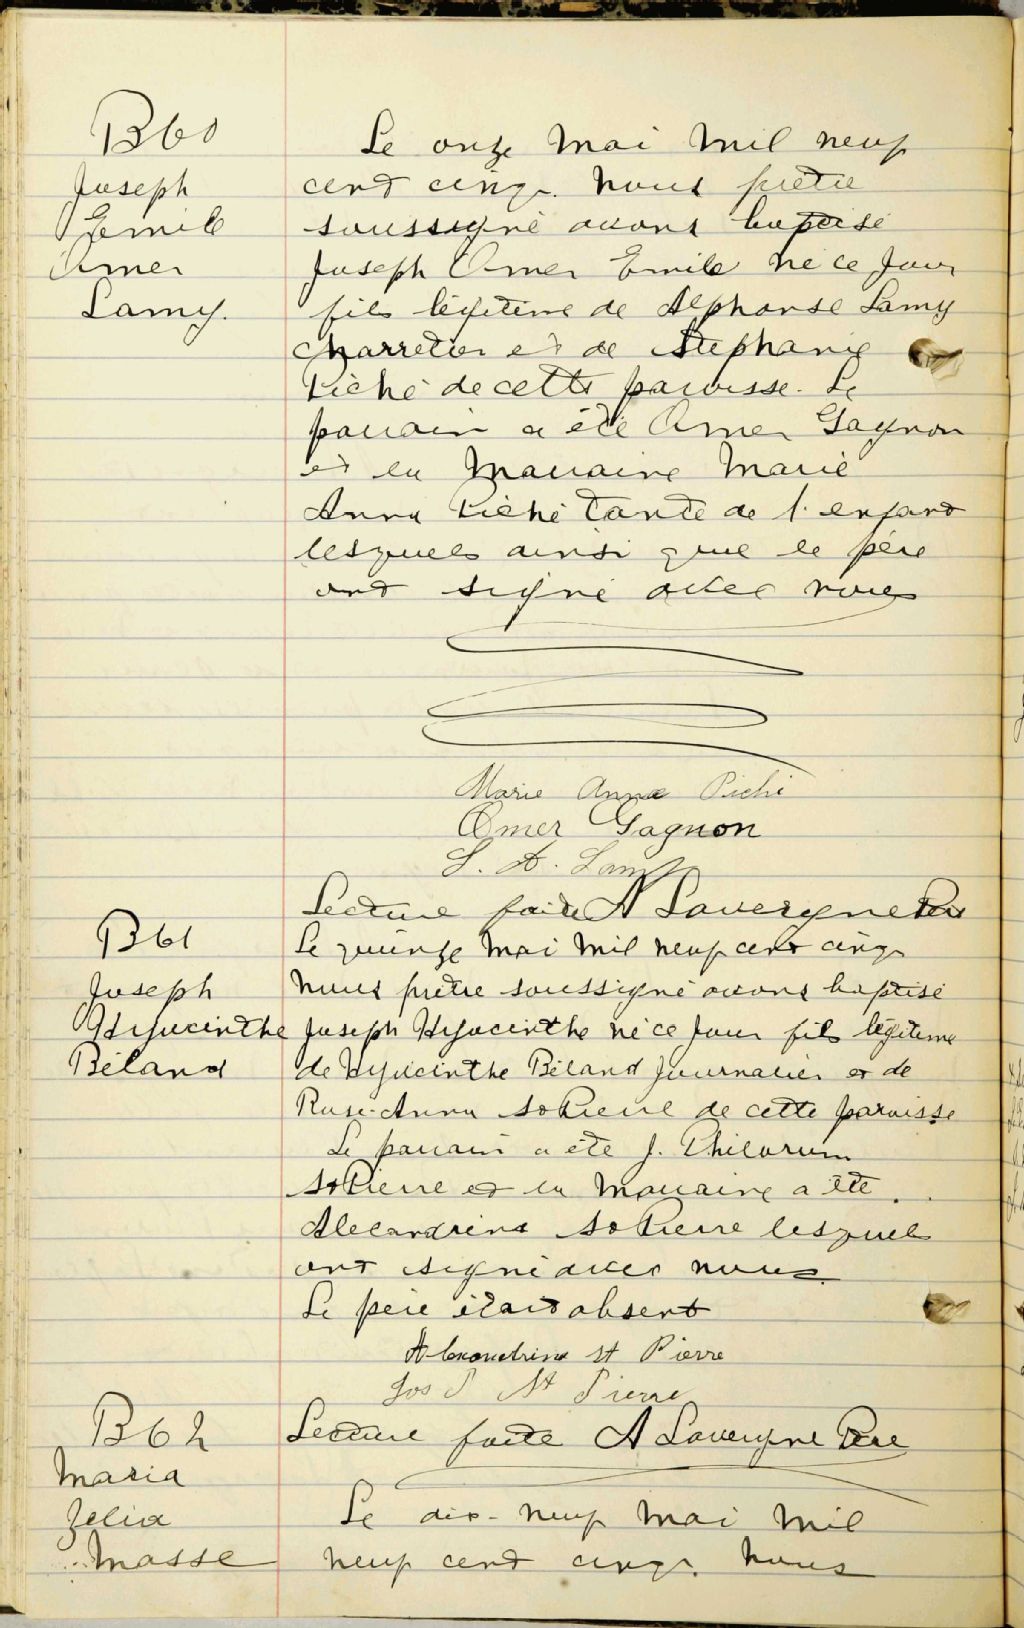 B60
Joseph
Emile
Omer
Lamy.
Le onze Mai Mil neuf
cent cinq. Nous prêtre
soussigné avons baptisé
Joseph Omer Emile né ce jour
fils légitime de Alphonse Lamy
charretier et de Stephanie
Piché de cette paroisse. Le
parrain a été Omer Gagnon
et la Marraine Marie
Anna Piché tante de l'enfant
lesquels ainsi que le père
ont signé avec nous
Marie Anna Piché
Omer Gagnon
L. A. Lamy
Lecture faite A Lavergne Ptre
B61
Joseph
Hyacinthe
Béland
Le quinze Mai Mil neuf cent cinq
Nous prêtre soussigné avons baptisé
Joseph Hyacinthe né ce jour fils légitime
de Hyacinthe Béland Journalier et de
Rose-Anna St Pierre de cette paroisse
Le parrain a été J. Philorum
St Pierre et la Marraine a été
Alexandrina St Pierre lesquels
ont signé avec nous
Le père était absent
Alexandrina St Pierre
Jos P St Pierre
Lecture faite A Lavergne Ptre
B62
Maria
Zelia
Masse
Le dix-neuf Mai Mil
neuf cent cinq. Nous